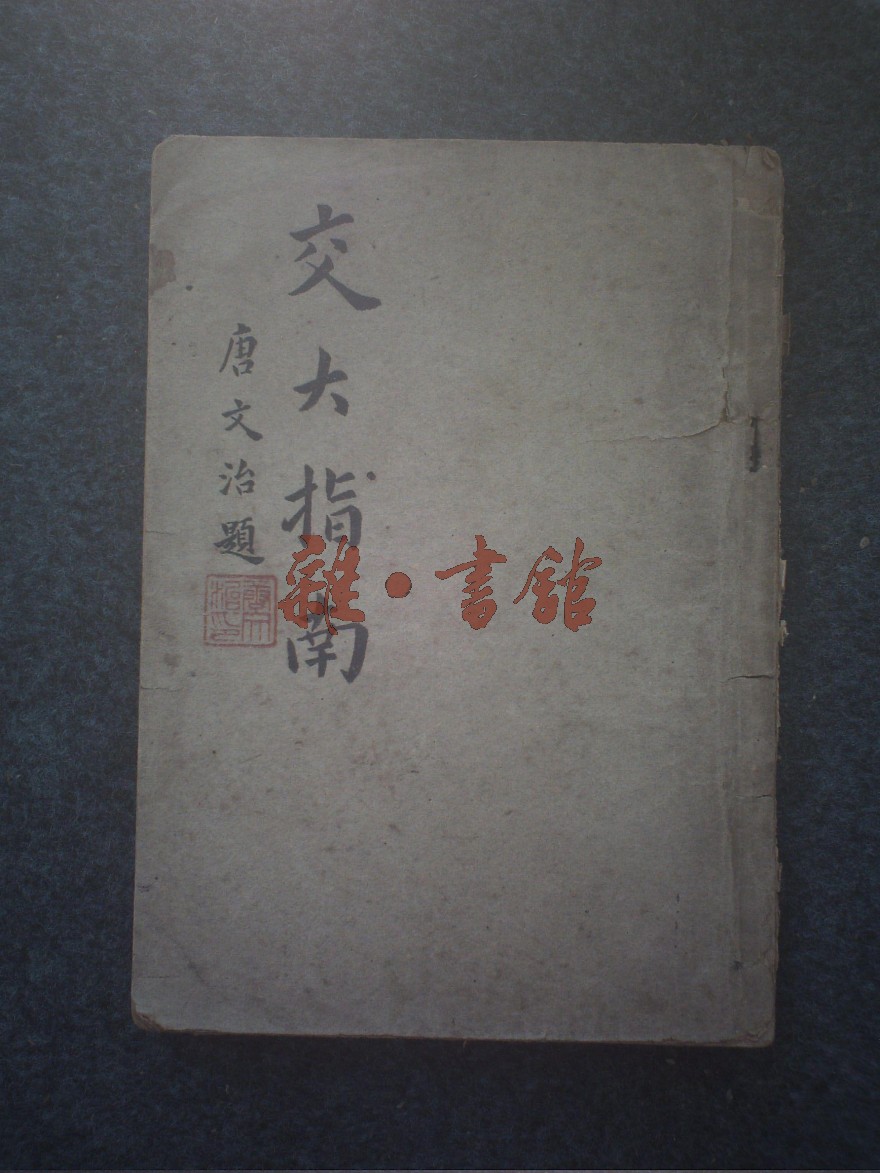 交大指南
唐文治題
雜·書館